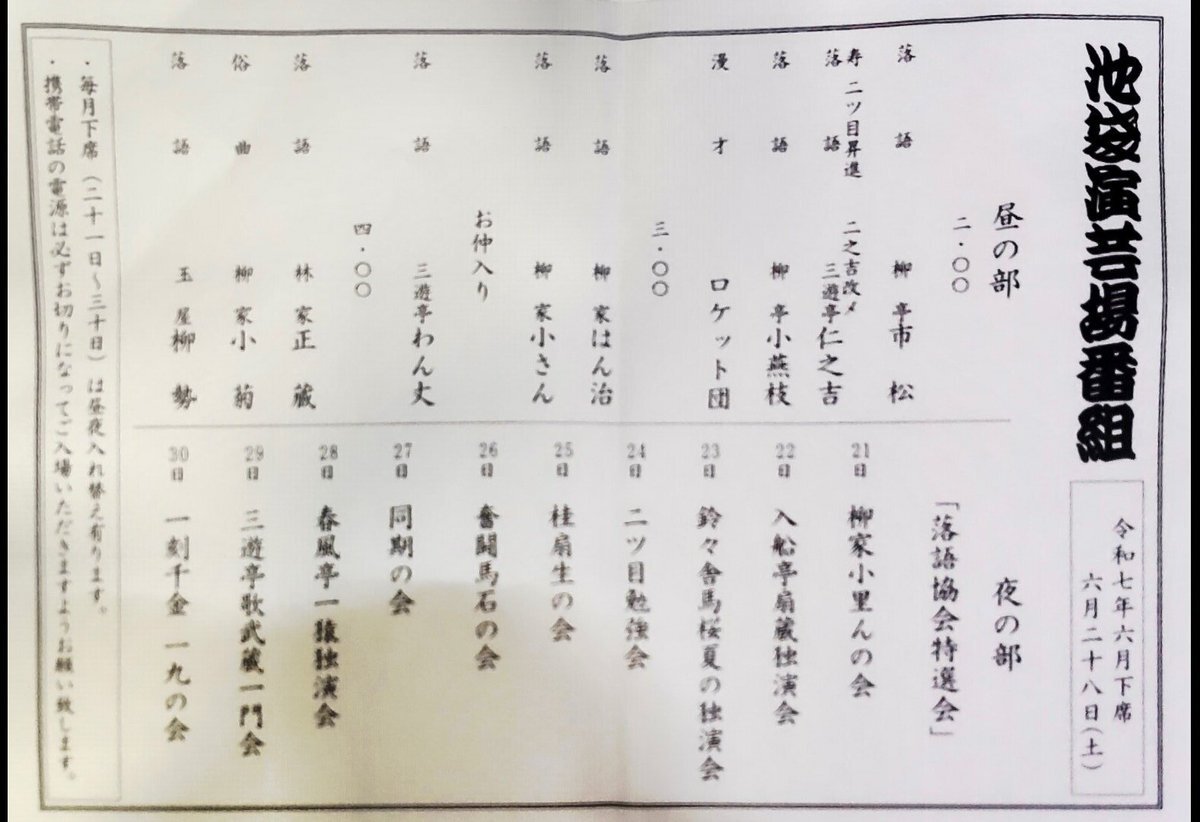 池袋演芸場番組
令和七年六月下席
六月二十八日(土)
昼の部
二・〇〇
落語 柳亭市松
寿 二ツ目昇進 二之吉改メ
落語 三遊亭仁之吉
落語 柳亭小燕枝
漫才 ロケット団
三・〇〇
落語 柳家はん治
落語 柳家小さん
お仲入り
落語 三遊亭わん丈
四・〇〇
落語 林家正蔵
俗曲 柳家小菊
落語 玉屋柳勢
夜の部
「落語協会特選会」
21日 柳家小里んの会
22日 入船亭扇蔵独演会
23日 鈴々舎馬桜夏の独演会
24日 二ツ目勉強会
25日 桂扇生の会
26日 奮闘馬石の会
27日 同期の会
28日 春風亭一猿独演会
29日 三遊亭歌武蔵一門会
30日 一刻千金 一九の会
・毎月下席(二十一日～三十日)は昼夜入れ替え有ります。
・携帯電話の電源は必ずお切りになってご入場いただきますようお願い致します。